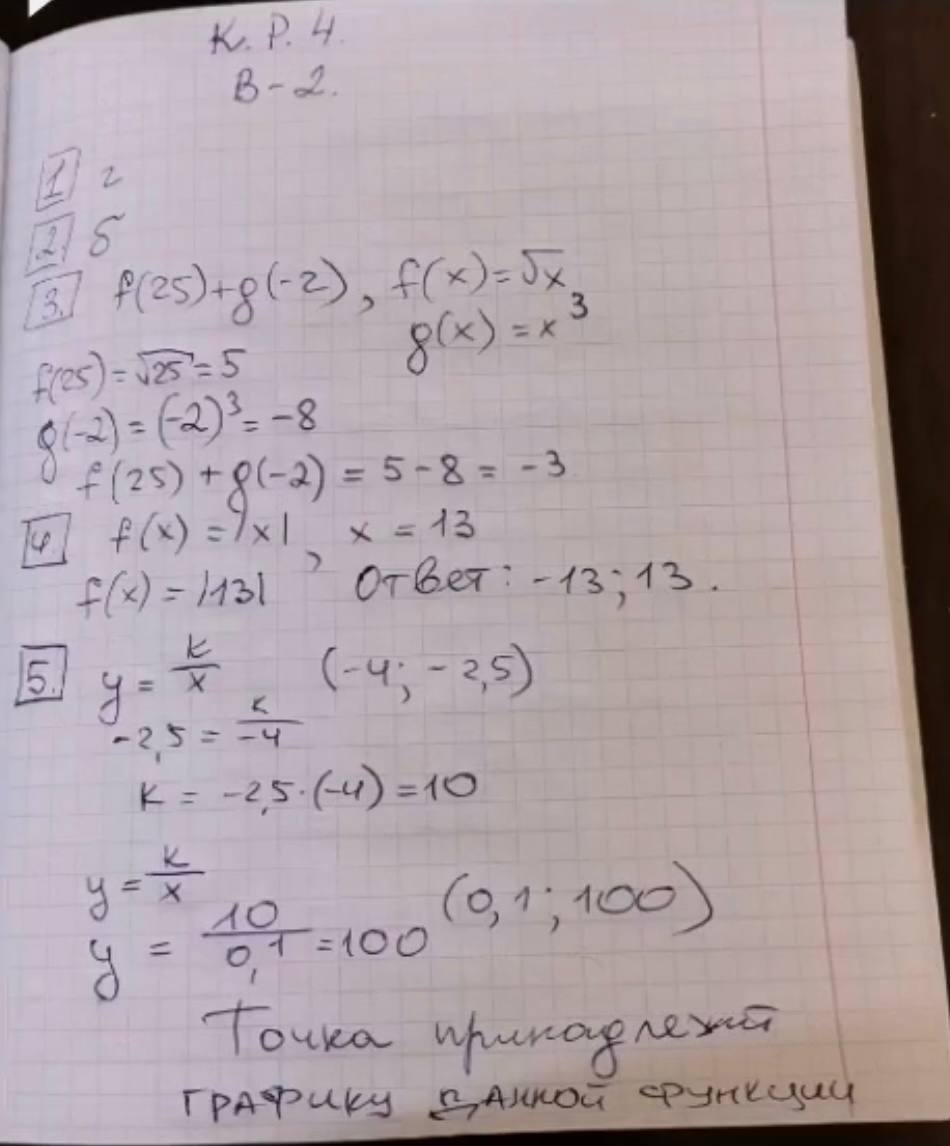 К. Р. 4.
В - 2.
1 г
2. б
3. f(25)+g(-2), f(x)=√x
g(x) = x³
f(25)=√25=5
g(-2)=(-2)³=-8
f(25)+g(-2)=5-8=-3
4. f(x)=|x|, x=13
f(x)=|13| Ответ: -13; 13.
5. y=k/x (-4; -2,5)
-2,5=k/-4
k = -2,5·(-4)=10
y=k/x
y = 10/0,1=100 (0,1; 100)
Точка принадлежит
графику данной функции